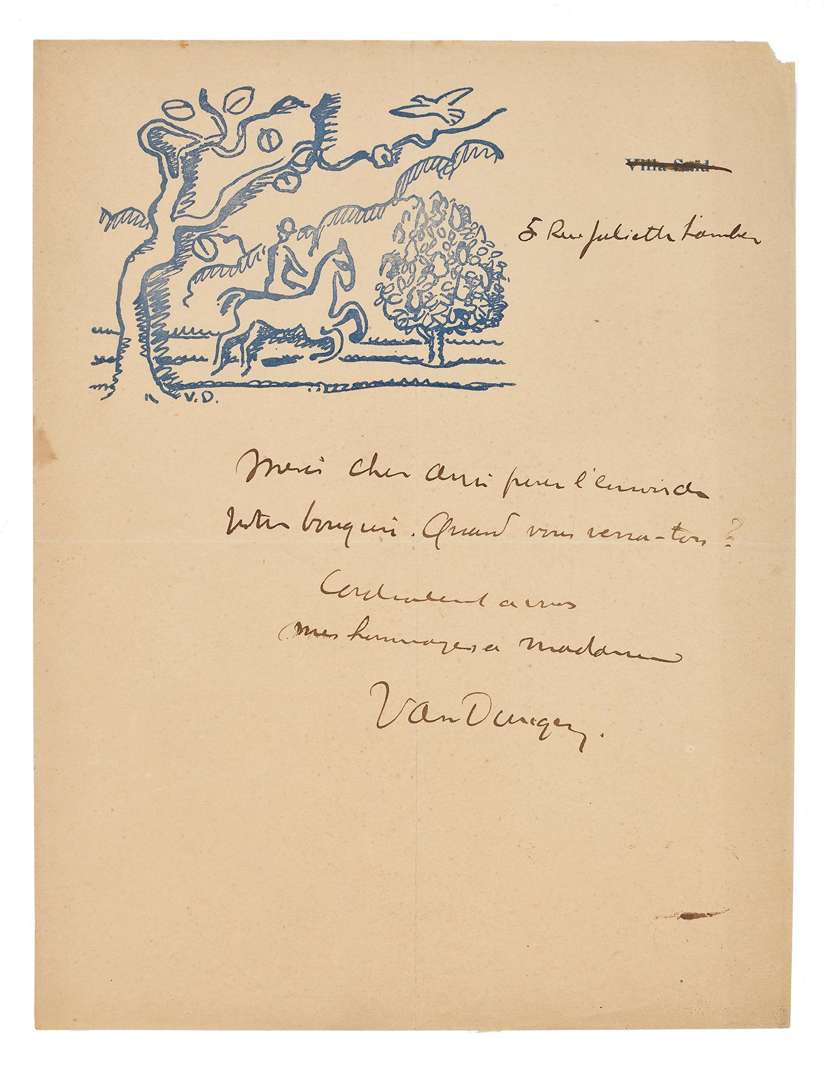 Villa Saïd
5 Rue Juliette Lamber
V.D.
Merci cher ami pour l'envoi de
votre bouquin. Quand vous verra-t-on ?
Cordialement à vous
mes hommages à Madame
Van Dongen.